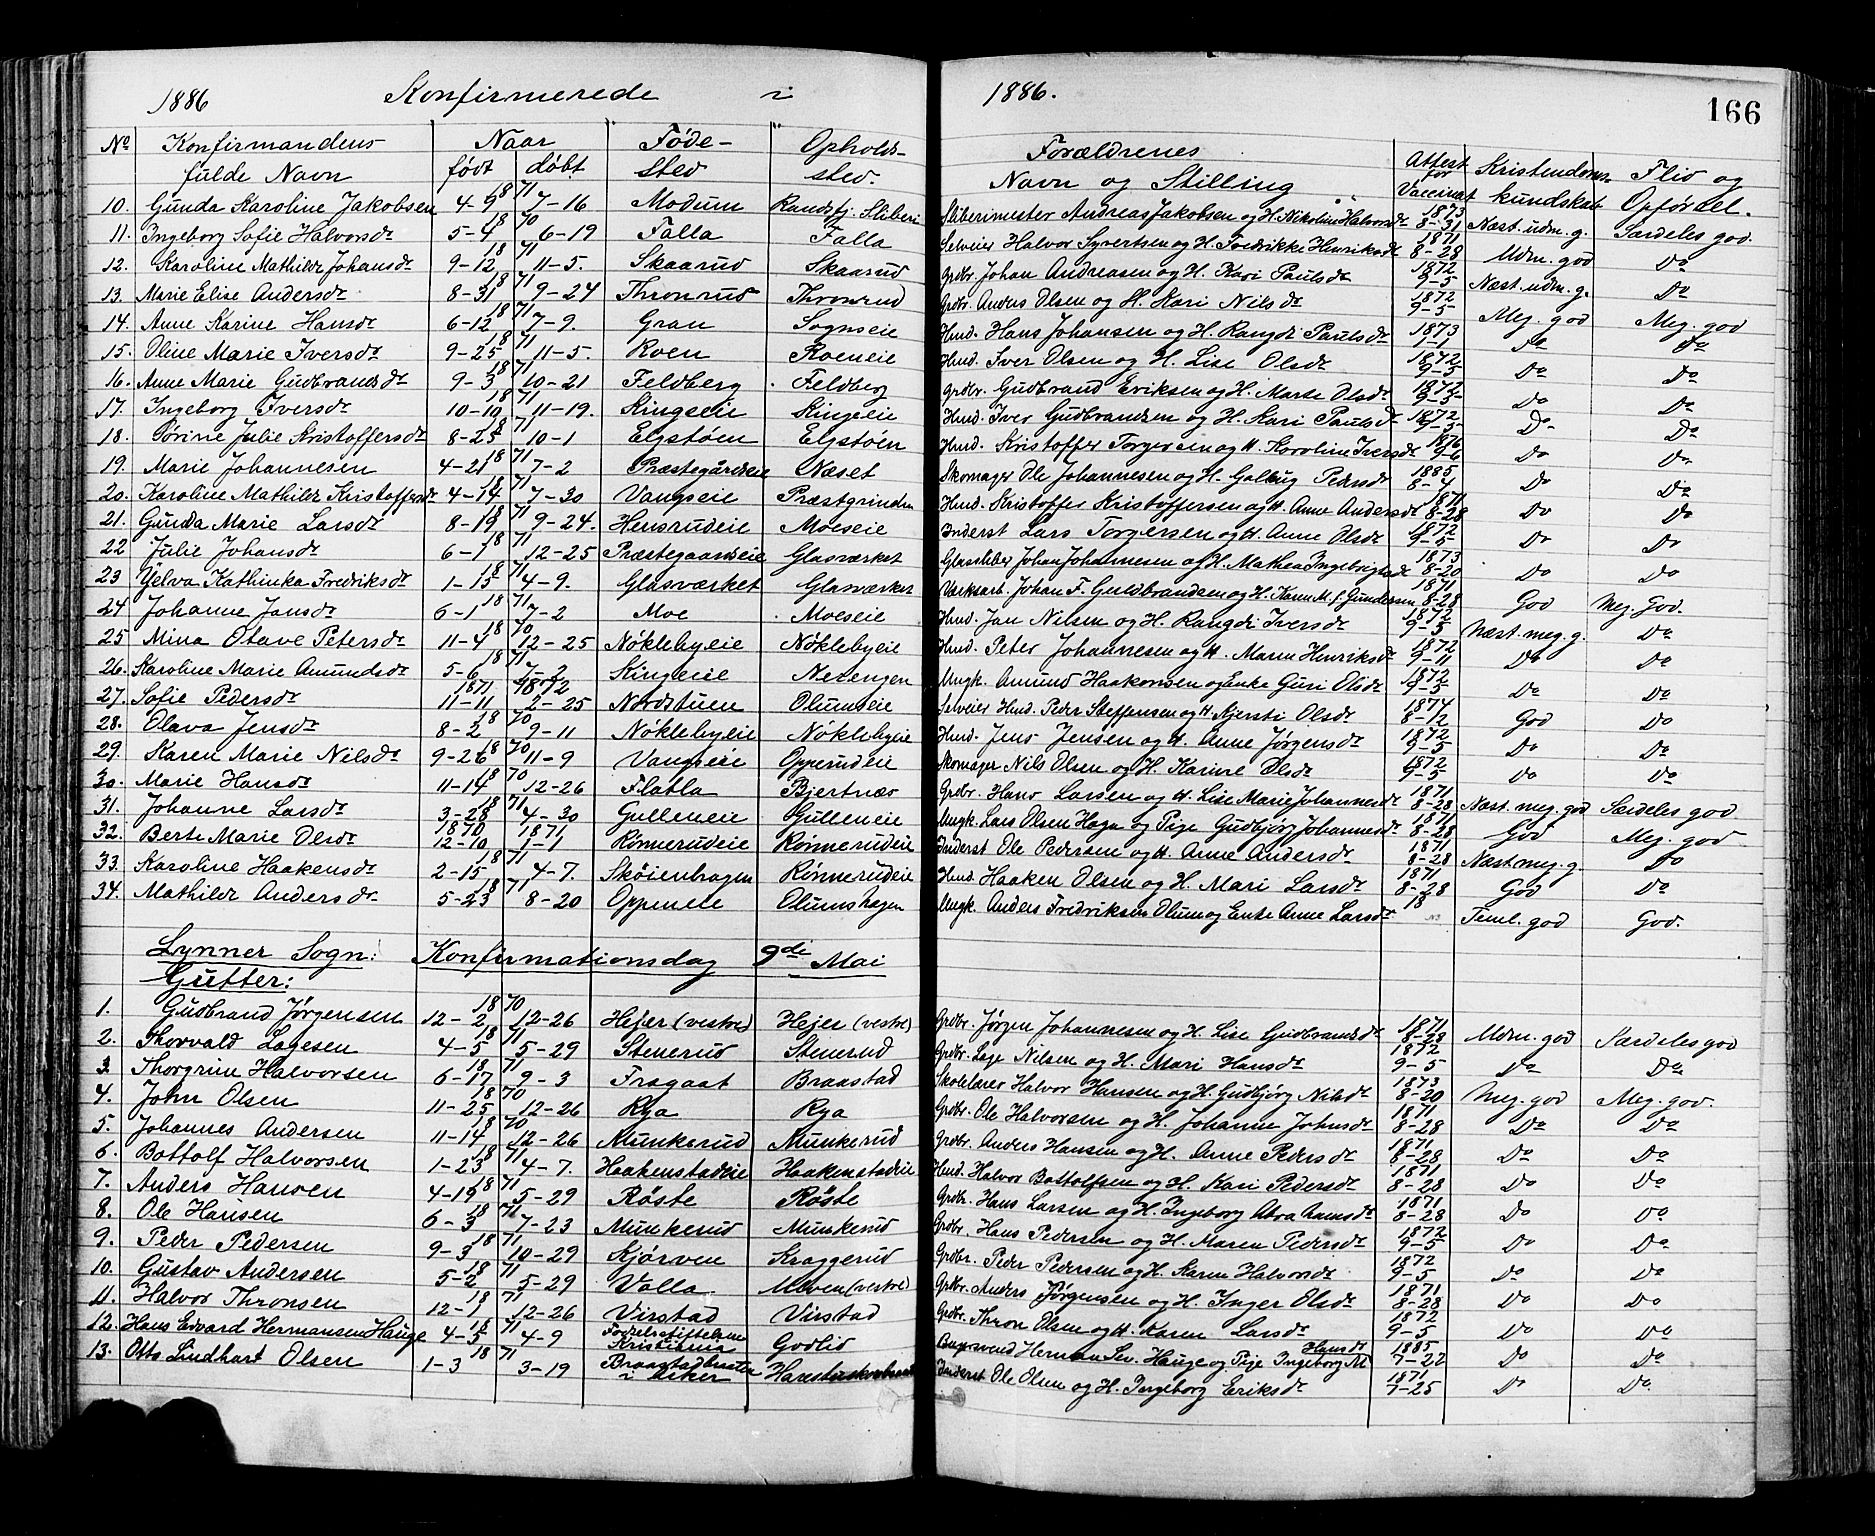 1886 Konfirmerede i 1886. 166
No Konfirmandens fulde Navn Naar født døbt Fødested Opholdssted. Forældrenes Navn og Stilling Attest for Vaccinat Kristendomskundskab Flid og Opførsel.
10. Gunda Karoline Jakobsen 4-9 1871 7-16 Modum Randsfj. Sliberi Sliberimester Andreas Jakobsen og H. Nikoline Halvorsdr 1873 8-31 Næst. udm. g. Særdeles god.
11. Ingeborg Sofie Halvorsdr 5-4 1870 6-19 Falla Falla Selveier Halvor Syvertsen og H. Fredrikke Henriksdr 1871 8-28 Udm. god Do
12. Karoline Mathilde Johansdr 9-12 1871 11-5. Skaarud Skaarud Grdbr. Johan Andreasen og H. Kari Paulsdr 1872 9-5 Næst. udm. g. Do
13. Marie Elise Andersdr 8-31 1871 9-24 Thronrud Thronrud Grdbr. Anders Olsen og H. Kari Nilsdr 1872 9-5 Meg. god Meg. god
14. Anne Karine Hansdr 6-12 1871 7-9. Gran Sognseie Husd. Hans Johansen og H. Rangdi Paulsdr 1873 Do Do
15. Oline Marie Iversdr 9-25 1871 11-5. Roen Roeneie Husd. Iver Olsen og H. Lise Olsdr 1872 9-5 Do Do
16. Anne Marie Gudbrandsdr 9-3 1871 10-21 Feldberg Feldberg Grdbr. Gudbrand Eriksen og H. Marte Olsdr 1872 9-5 Do Do
17. Ingeborg Iversdr 10-19 1871 11-19. Ringseie Ringseie Husd. Iver Gudbrandsen og H. Kari Paulsdr 1872 9-5 Do Do
18. Sørine Julie Kristoffersdr 8-25 1871 10-1 Elgstøen Elgstøen Husd. Kristoffer Torgersen og H. Karoline Iversdr 1876 9-6 Do Do
19. Marie Johannesen 4-21 1871 7-2 Præstegårdseie Næset Skomager Ole Johannesen og H. Golbug Pedersdr 1885 8-4 Do Do
20. Karoline Mathilde Kristoffersdr 4-14 1871 7-30 Vangseie Præstgrinden Husd. Kristoffer Kristoffersen og H. Anne Andersdr 1871 8-28 Do Do
21. Gunda Marie Larsdr 8-19 1871 9-24. Hensrudeie Moeseie Inderst Lars Torgersen og H. Anne Olsdr 1872 9-5 Do Do
22 Julie Johansdr 6-1 1871 12-25 Præstegaardseie Glasværket Glassliber Johan Johannesen og H. Mathea Ingebrigtsdr 1873 8-20 Do Do
23 Yelva Kathinka Fredriksdr 1-15 1871 4-9. Glasværket Glasværket Værksarb. Johan F. Guldbrandsen og H. Karen M. f. Gundersen 1871 8-28 God Meg. God.
24 Johanne Jansdr 6-1 1871 7-2 Moe Moeseie Husd. Jan Nilsen og H. Rangdi Iversdr 1872 9-5 Næst. meg. g. Do
25 Mina Otave Petersdr 11-4 1870 12-25 Nøklebyeie Nøklebyeie Husd. Peter Johannesen og H. Maren Henriksdr 1872 9-11 Do Do
26. Karoline Marie Amundsdr 5-6 1871 7-2 Ringseie Nesengen Ungk. Amund Haakonsen og Enke Guri Olsdr 1872 9-5 Do Do
27. Sofie Pedersdr 1871 11-11 1872 2-25 Nordstuen Olumseie Selveier Husd. Peder Steffensen og H. Kjersti Olsdr 1874 8-12 God Do
28. Olava Jensdr 8-2 1870 9-11 Nøklebyeie Nøklebyeie Husd. Jens Jensen og H. Anne Jørgensdr 1872 9-5 Do Do
29. Karen Marie Nilsdr 9-26 1870 11-9 Vangseie Opperudeie Skomager Nils Olsen og H. Karine Olsdr 1872 9-5 Do Do
30. Marie Hansdr 11-14 1870 12-26 Flatla Bjertnæs Grdbr. Hans Larsen og H. Lise Marie Johannesdr 1871 8-28 Næst. meg. god Særdeles god
31. Johanne Larsdr 3-28 1871 4-30 Gulleneie Gulleneie Ungk. Lars Olsen Hagn og Pige Gudbjørg Johannesdr 1871 8-28 God Meg. god
32. Berte Marie Olsdr 1870 12-10 1871 1-1 Rønnerudeie Rønnerudeie Inderst Ole Pedersen og H. Anne Andersdr 1871 8-28 Næst. meg. g. Do
33. Karoline Haakensdr 2-15 1871 4-7. Skøienhagen Rønnerudeie Husd. Haaken Olsen og H. Mari Larsdr 1871 8-28 God Do
34. Mathilde Andersdr 5-23 1871 8-20 Oppeneie Olumshagen Ungk. Anders Fredriksen Olum og Enke Anne Larsdr 18 Teml. god God.
Lynner Sogn: Konfirmationsdag 9de Mai
Gutter:
1. Gudbrand Jørgensen 12-2 1870 12-26 Hejer (vestre) Hejer (vestre) Grdbr. Jørgen Johannesen og H. Lise Gudbrandsdr 1871 8-28 Udm. god Særdeles god
2. Thorvald Lagesen 4-5 1871 5-29 Stenerud Stenerud Grdbr. Lage Nilsen og H. Mari Hansdr 1872 9-5 Do Do
3. Thorgrim Halvorsen 6-17 1871 9-3 Fragaat Braastad Skolelærer Halvor Hansen og H. Gudbjørg Nilsdr 1873 8-20 Meg. god Meg. god.
4. John Olsen 11-25 1870 12-26 Rya Rya Grdbr. Ole Halvorsen og H. Johanne Johnsdr 1871 8-28 Do Do
5. Johannes Andersen 11-14 1870 12-26 Munkerud Munkerud Grdbr. Anders Hansen og H. Anne Pedersdr 1871 8-28 Do Do
6. Bottolf Halvorsen 1-23 1871 4-7. Haakenstadeie Haakenstadeie Husd. Halvor Bottolfsen og H. Kari Pedersdr 1871 8-28 Do Do
7. Anders Hansen 4-19 1871 5-29 Røste Røste Grdbr. Hans Larsen og H. Ingeborg Abrahamsdr 1871 8-28 Do Do
8. Ole Hansen 6-3 1871 7-23 Munkerud Munkerud Grdbr. Hans Pedersen og H. Maren Pedersdr 1872 9-5 Do Do
9. Peder Pedersen 9-3 1871 10-29 Kjørven Kraggerud Grdbr. Peder Pedersen og H. Karen Halvorsdr 1872 9-5 Do Do
10. Gustav Andersen 5-2 1871 5-29 Volla Moen (vestre) Grdbr. Anders Jørgensen og H. Inger Olsdr 1871 8-28 Do Do
11. Halvor Thronsen 12-1 1871 12-26 Virstad Virstad Grdbr. Thron Olsen og H. Karen Larsdr 1872 9-5 Do Do
12. Hans Edvard Hermansen Hauge 4-5 1871 4-9 Fødselsstiftelsen Kristiania Godlid Herman Sev. Hauge og Pige Ingeborg M. Hansdr 1885 7-22 Do Do
13. Otto Lindhart Olsen 1-3 1871 3-19 i Asker Inderst Ole Olsen og H. Ingeborg Eriksdr 1871 7-25 Do Do